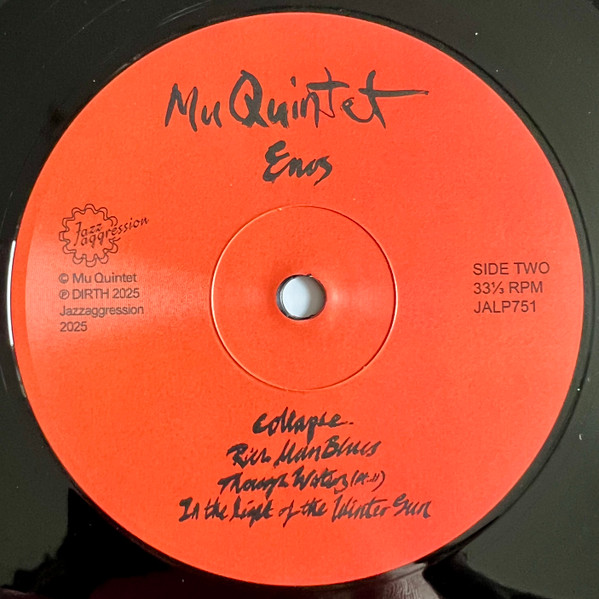 Mu Quintet
Enos
Jazz
aggression
© Mu Quintet
℗ DIRTH 2025
Jazzaggression
2025
SIDE TWO
33⅓ RPM
JALP751
Collapse.
Rich Man Blues
Through Waters (pt. II)
In the Light of the Winter Sun